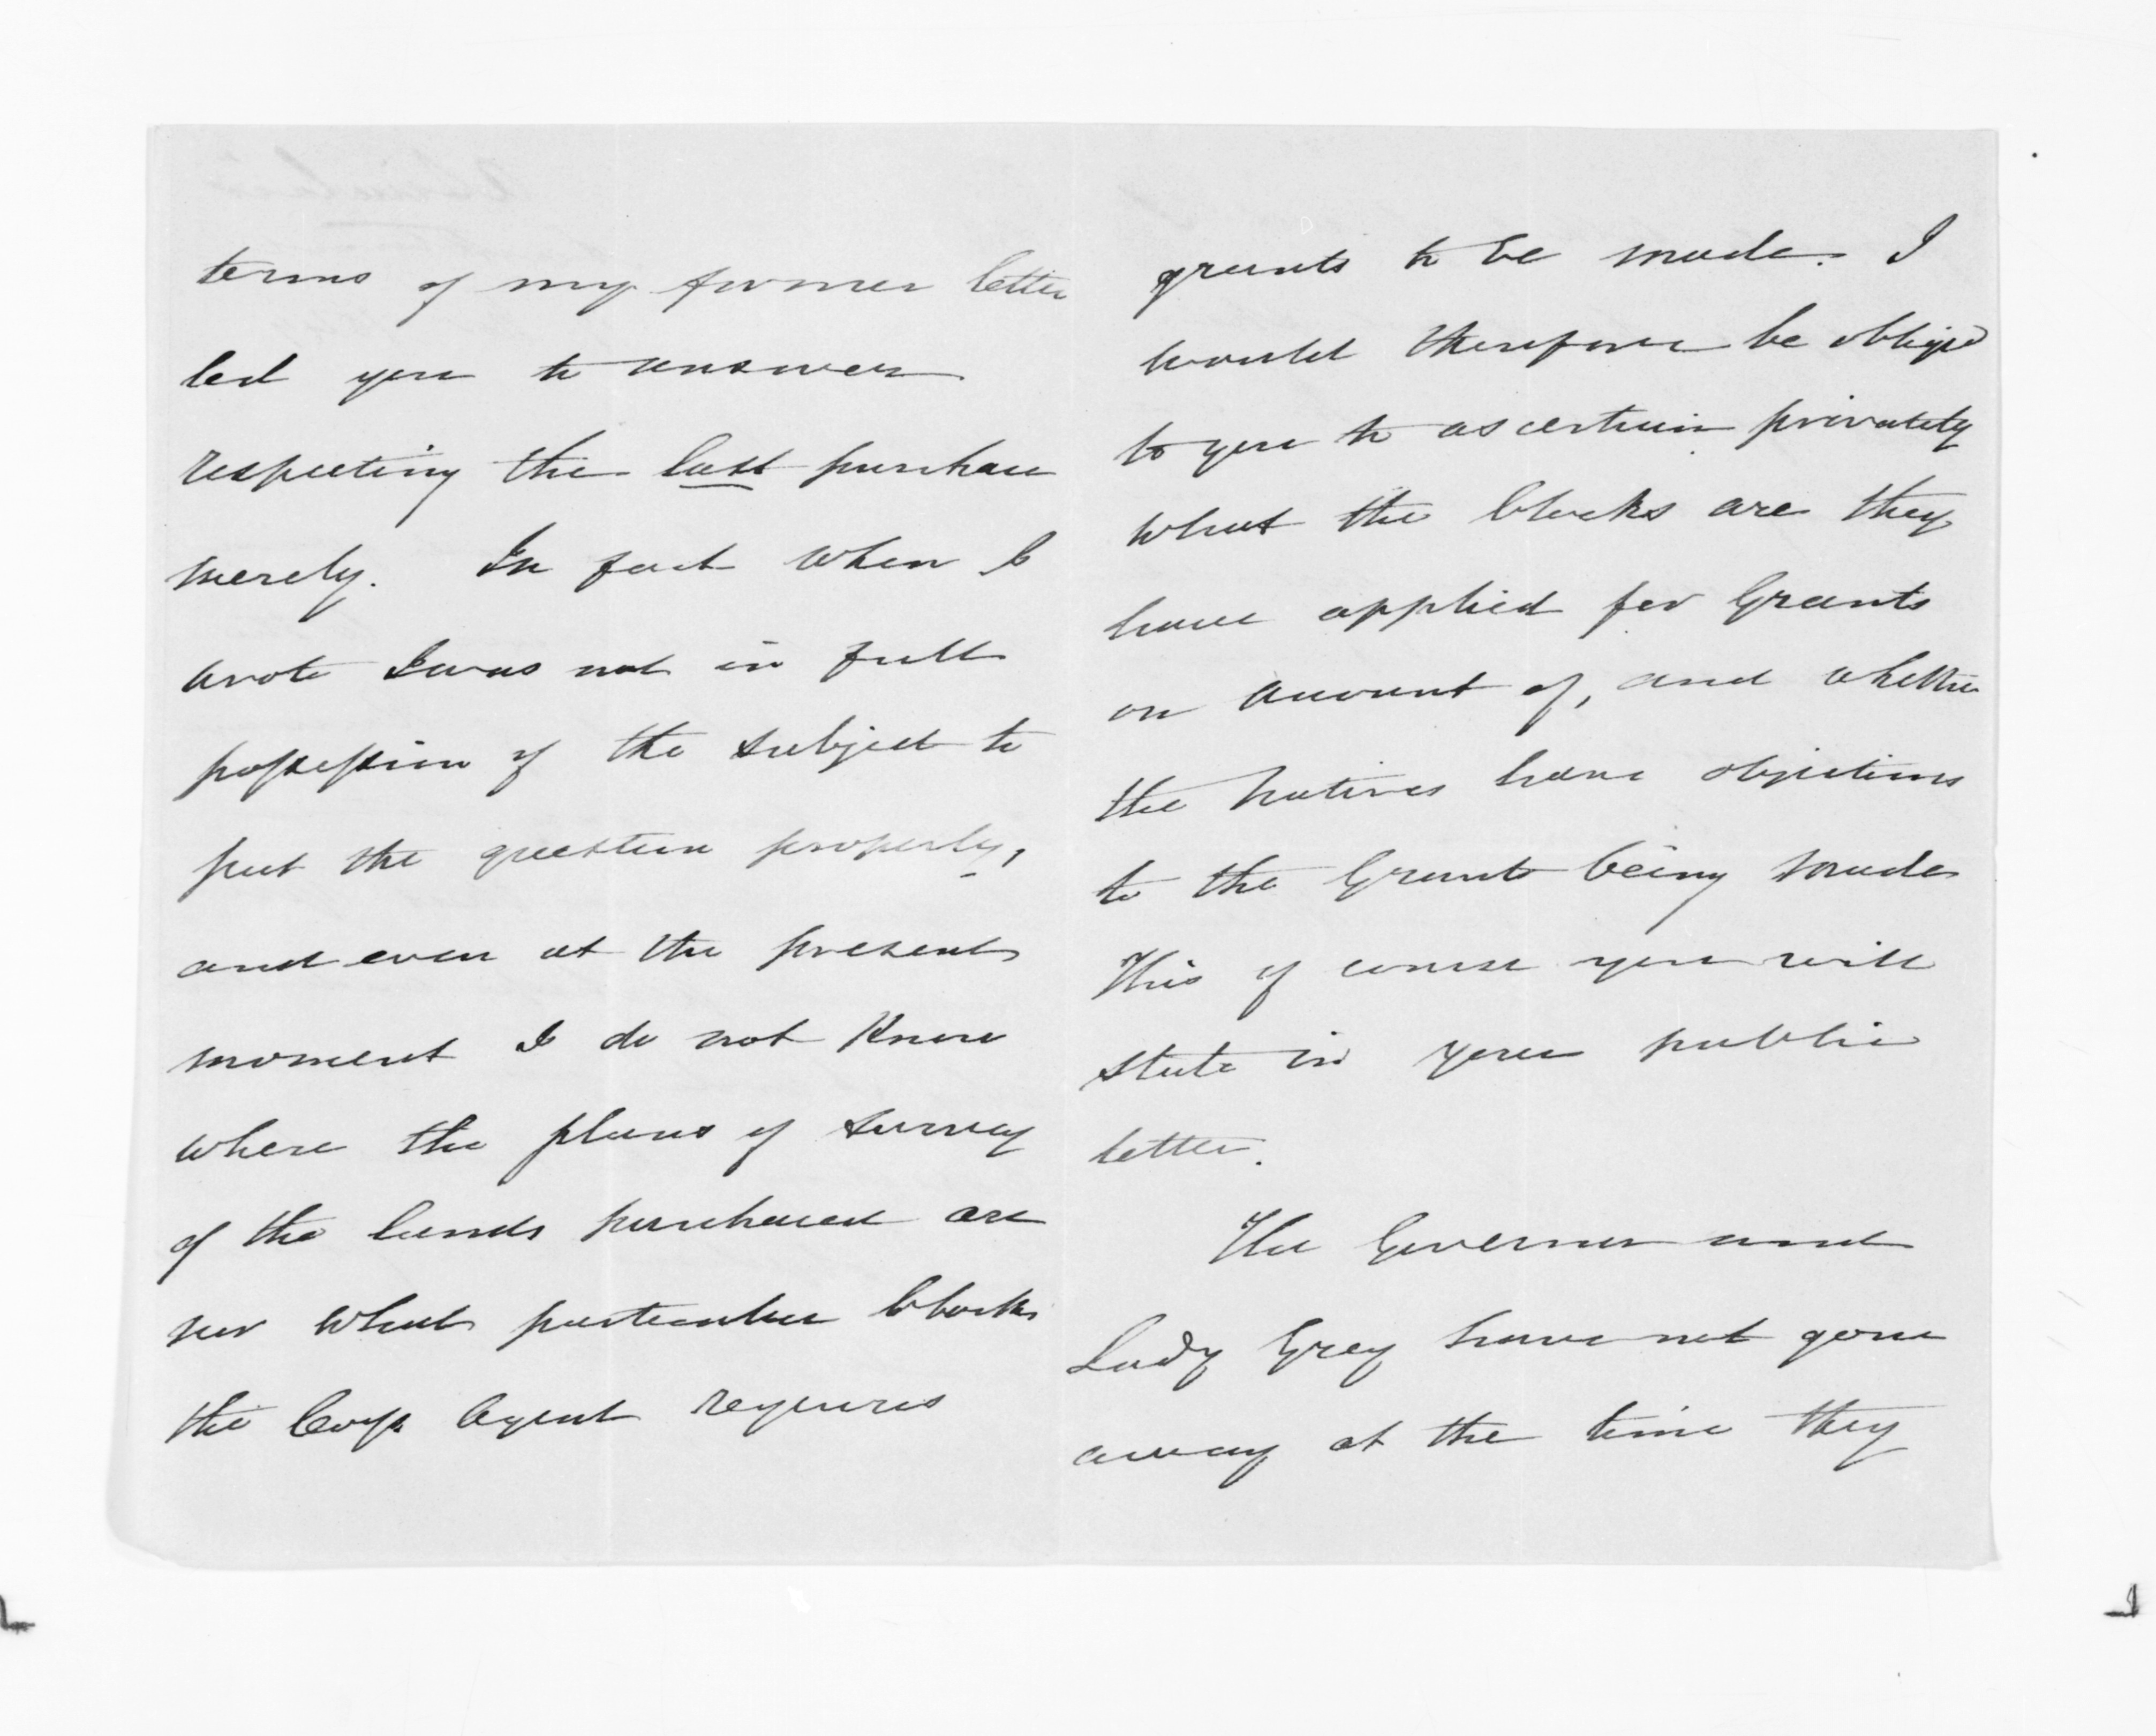 terms of my former letter
led you to answer
respecting the last purchase
merely. In fact when I
wrote I was not in full
possession of the subject to
put the question properly,
and even at the present
moment I do not know
where the plans of survey
of the lands purchased are
nor what particular blocks
the Comp Agent requires
grants to be made. I
would therefore be obliged
to you to ascertain privately
what the blocks are they
have applied for Grants
on account of, and whether
the Natives have objections
to the Grants being made
This of course you will
state in your public
letter.
The Governor and
Lady Grey have not gone
away at the time they